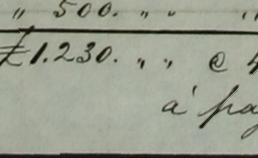 " 500. " " "
£1.230. " " @ 4
à pay